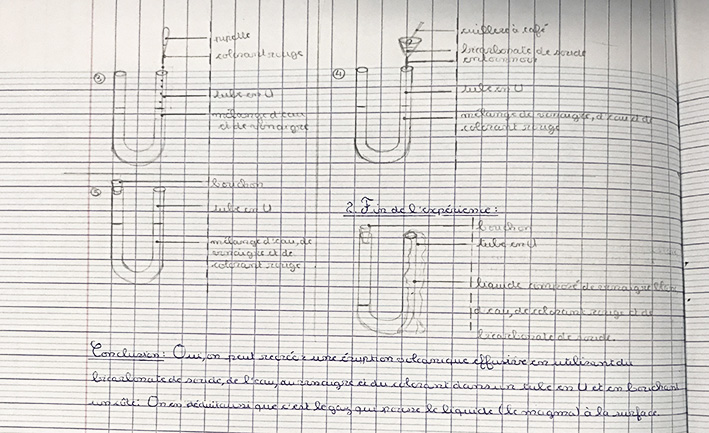 ③
pipette
colorant rouge
tube en U
mélange d'eau
et de vinaigre
④
cuillère à café
bicarbonate de soude
entonnoir
tube en U
mélange de vinaigre, d'eau et de
colorant rouge
⑤
bouchon
tube en U
mélange d'eau, de
vinaigre et de
colorant rouge.
2. Fin de l'expérience:
bouchon
tube en U
liquide composé de vinaigre
d'eau, de colorant rouge et de
bicarbonate de soude.
Conclusion: Oui, on peut recréer une éruption volcanique effusive en utilisant du
bicarbonate de soude, de l'eau, du vinaigre et du colorant dans un tube en U et en bouchant
un côté. On en déduit aussi que c'est le gaz qui pousse le liquide (le magma) à la surface.